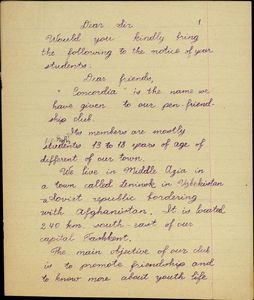 1
Dear sir
Would you kindly bring
the following to the notice of your
students.
Dear friends,
"Concordia" is the name we
have given to our pen-friend-
ship club.
Its members are mostly
students 13 to 18 years of age of
different of our town.
We live in Middle Azia in
a town called Leninsk in Uzbekistan
a Soviet republic bordering
with Afghanistan. It is located
240 km. south-east of our
capital Tashkent.
The main objective of our club
is to promote friendship and
to know more about youth life